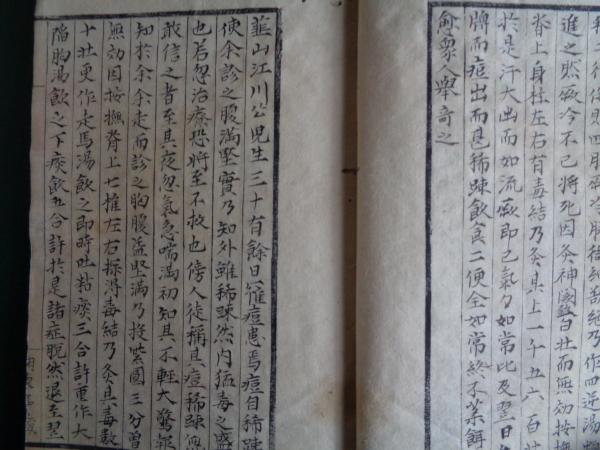 和二後従則四肢厥冷脈
進之然厥今不已將死因灸神闕百壮而無効按撫
脊上身柱左右有毒結乃灸其上一千五六百壮
於是汗大出而如流厥即已氣力如常比及翌日
牌而痘出而甚稀踈飲食二便全如常終不業餌
愈衆人舉奇之
韮山江川公児生三十有餘日罹痘患焉痘自稀踈
使余診之腹滿堅實乃知外雖稀踈然内猛毒之盛
也若忽治療恐將至不救也傍人徒稱其痘稀踈無
敢信之者至其夜忽氣急喘滿初知其不軽大驚報
知於余余走而診之胸腹益堅滿乃投紫圓三分曽
無効因按撫脊上七推左右探得毒結乃灸其毒数
十壮更作走馬湯飲之即時吐粘痰三合許重作大
陥胸湯飲之下痰飲五合許於是諸症脱然退至翌